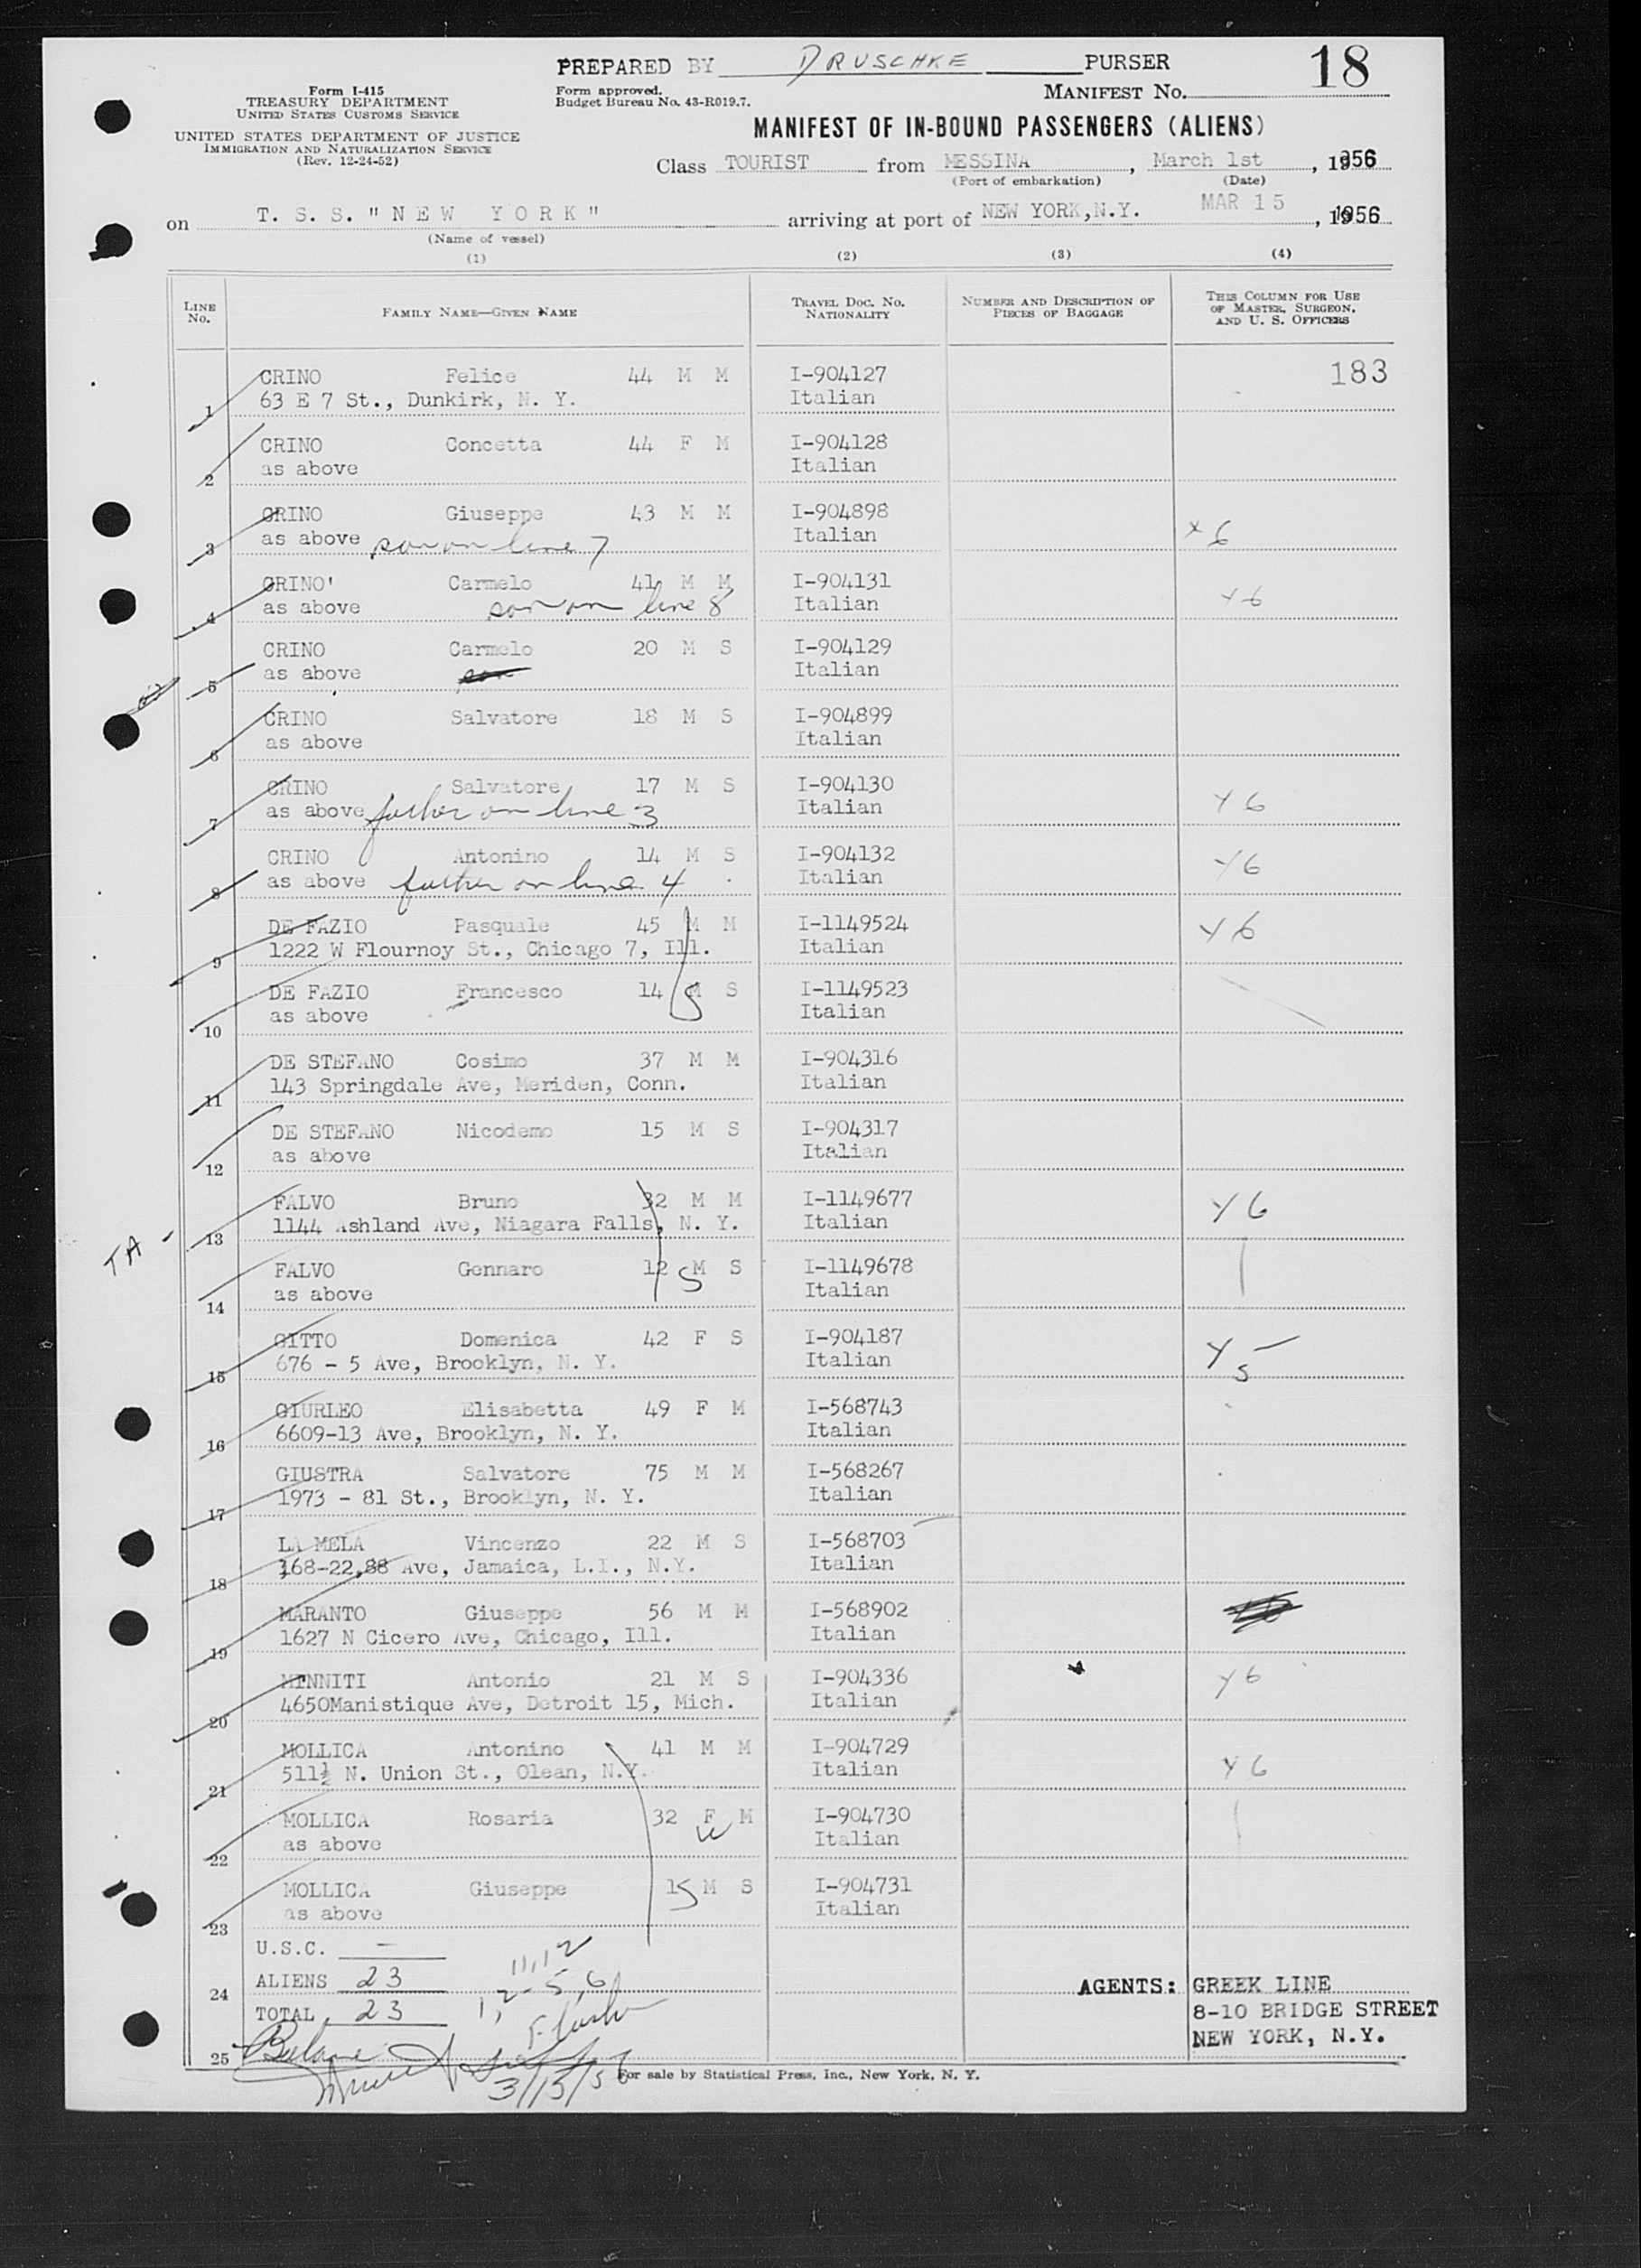 PREPARED BY DRUSCHKE PURSER 18
Form I-415
TREASURY DEPARTMENT
UNITED STATES CUSTOMS SERVICE
UNITED STATES DEPARTMENT OF JUSTICE
IMMIGRATION AND NATURALIZATION SERVICE
(Rev. 12-24-52)
Form approved.
Budget Bureau No. 43-R019.7.
MANIFEST NO.
MANIFEST OF IN-BOUND PASSENGERS (ALIENS)
Class TOURIST from MESSINA, March 1st, 1956
(Port of embarkation) (Date)
on T. S. S. "NEW YORK" arriving at port of NEW YORK, N.Y. MAR 15, 1956
(Name of vessel)
(1) (2) (3) (4)
LINE NO. FAMILY NAME—GIVEN NAME TRAVEL DOC. NO. NATIONALITY NUMBER AND DESCRIPTION OF PIECES OF BAGGAGE THIS COLUMN FOR USE OF MASTER, SURGEON, AND U. S. OFFICERS
CRINO Felice 44 M M I-904127 183
1 63 E 7 St., Dunkirk, N. Y. Italian
CRINO Concetta 44 F M I-904128
2 as above Italian
CRINO Giuseppe 43 M M I-904898
3 as above son on line 7 Italian x6
CRINO' Carmelo 41 M M I-904131
4 as above son on line 8 Italian Y6
CRINO Carmelo 20 M S I-904129
5 as above Italian
CRINO Salvatore 18 M S I-904899
6 as above Italian
CRINO Salvatore 17 M S I-904130
7 as above father on line 3 Italian Y6
CRINO Antonino 14 M S I-904132
8 as above father on line 4 Italian Y6
DE FAZIO Pasquale 45 M M I-1149524 Y6
9 1222 W Flournoy St., Chicago 7, Ill. Italian
DE FAZIO Francesco 14 M S I-1149523
10 as above Italian
DE STEFANO Cosimo 37 M M I-904316
11 143 Springdale Ave, Meriden, Conn. Italian
DE STEFANO Nicodemo 15 M S I-904317
12 as above Italian
FALVO Bruno 32 M M I-1149677 Y6
TA - 13 1144 Ashland Ave, Niagara Falls, N. Y. Italian
FALVO Gennaro 12 M S I-1149678
14 as above Italian
GITTO Domenica 42 F S I-904187 Y5
15 676 - 5 Ave, Brooklyn, N. Y. Italian
GIURLEO Elisabetta 49 F M I-568743
16 6609-13 Ave, Brooklyn, N. Y. Italian
GIUSTRA Salvatore 75 M M I-568267
17 1973 - 81 St., Brooklyn, N. Y. Italian
LA MELA Vincenzo 22 M S I-568703
18 168-22,88 Ave, Jamaica, L.I., N.Y. Italian
MARANTO Giuseppe 56 M M I-568902
19 1627 N Cicero Ave, Chicago, Ill. Italian
MINNITI Antonio 21 M S I-904336 Y6
20 4650Manistique Ave, Detroit 15, Mich. Italian
MOLLICA Antonino 41 M M I-904729
21 511½ N. Union St., Olean, N.Y. Italian Y6
MOLLICA Rosaria 32 F M I-904730
22 as above W Italian
MOLLICA Giuseppe 15 M S I-904731
23 as above Italian
U.S.C. — 11,12
24 ALIENS 23 1,2-5,6 AGENTS: GREEK LINE
TOTAL 23 8-10 BRIDGE STREET
25 NEW YORK, N.Y.
3/15/56
For sale by Statistical Press, Inc., New York, N. Y.